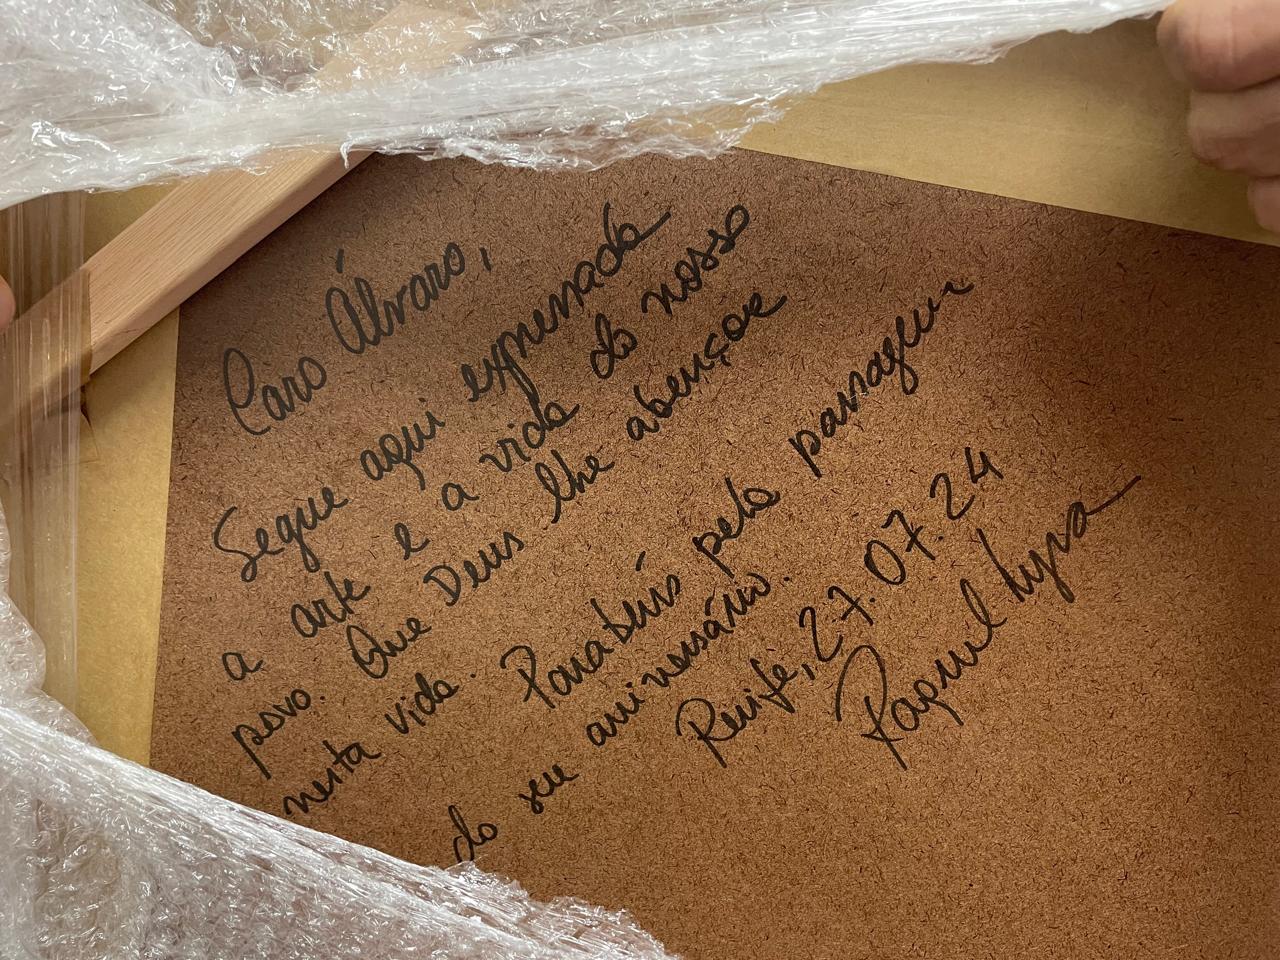 Caro Álvaro,
Segue aqui expressada
a arte e a vida do nosso
povo. Que Deus lhe abençoe
nesta vida. Parabéns pela passagem
do seu aniversário.
Recife, 27.07.24
Raquel Lyra